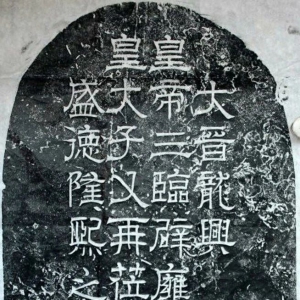 大晉龍興
皇帝三臨辟雍
皇大子又再莅
盛德隆熙之